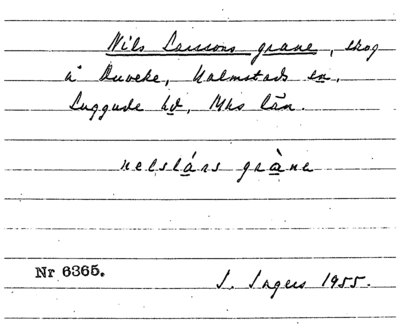 Nils Larssons grane, skog
å Duveke, Halmstads sn.
Luggude hd, Mhs län.
nelslárs gràne
Nr 6365.
I. Ingers 1955.